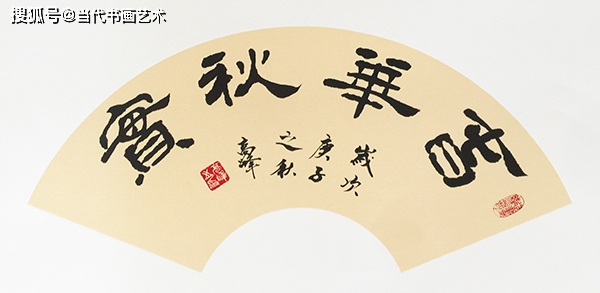 搜狐号@当代书画艺术
春華秋實
歲次
庚子
之秋
高峰